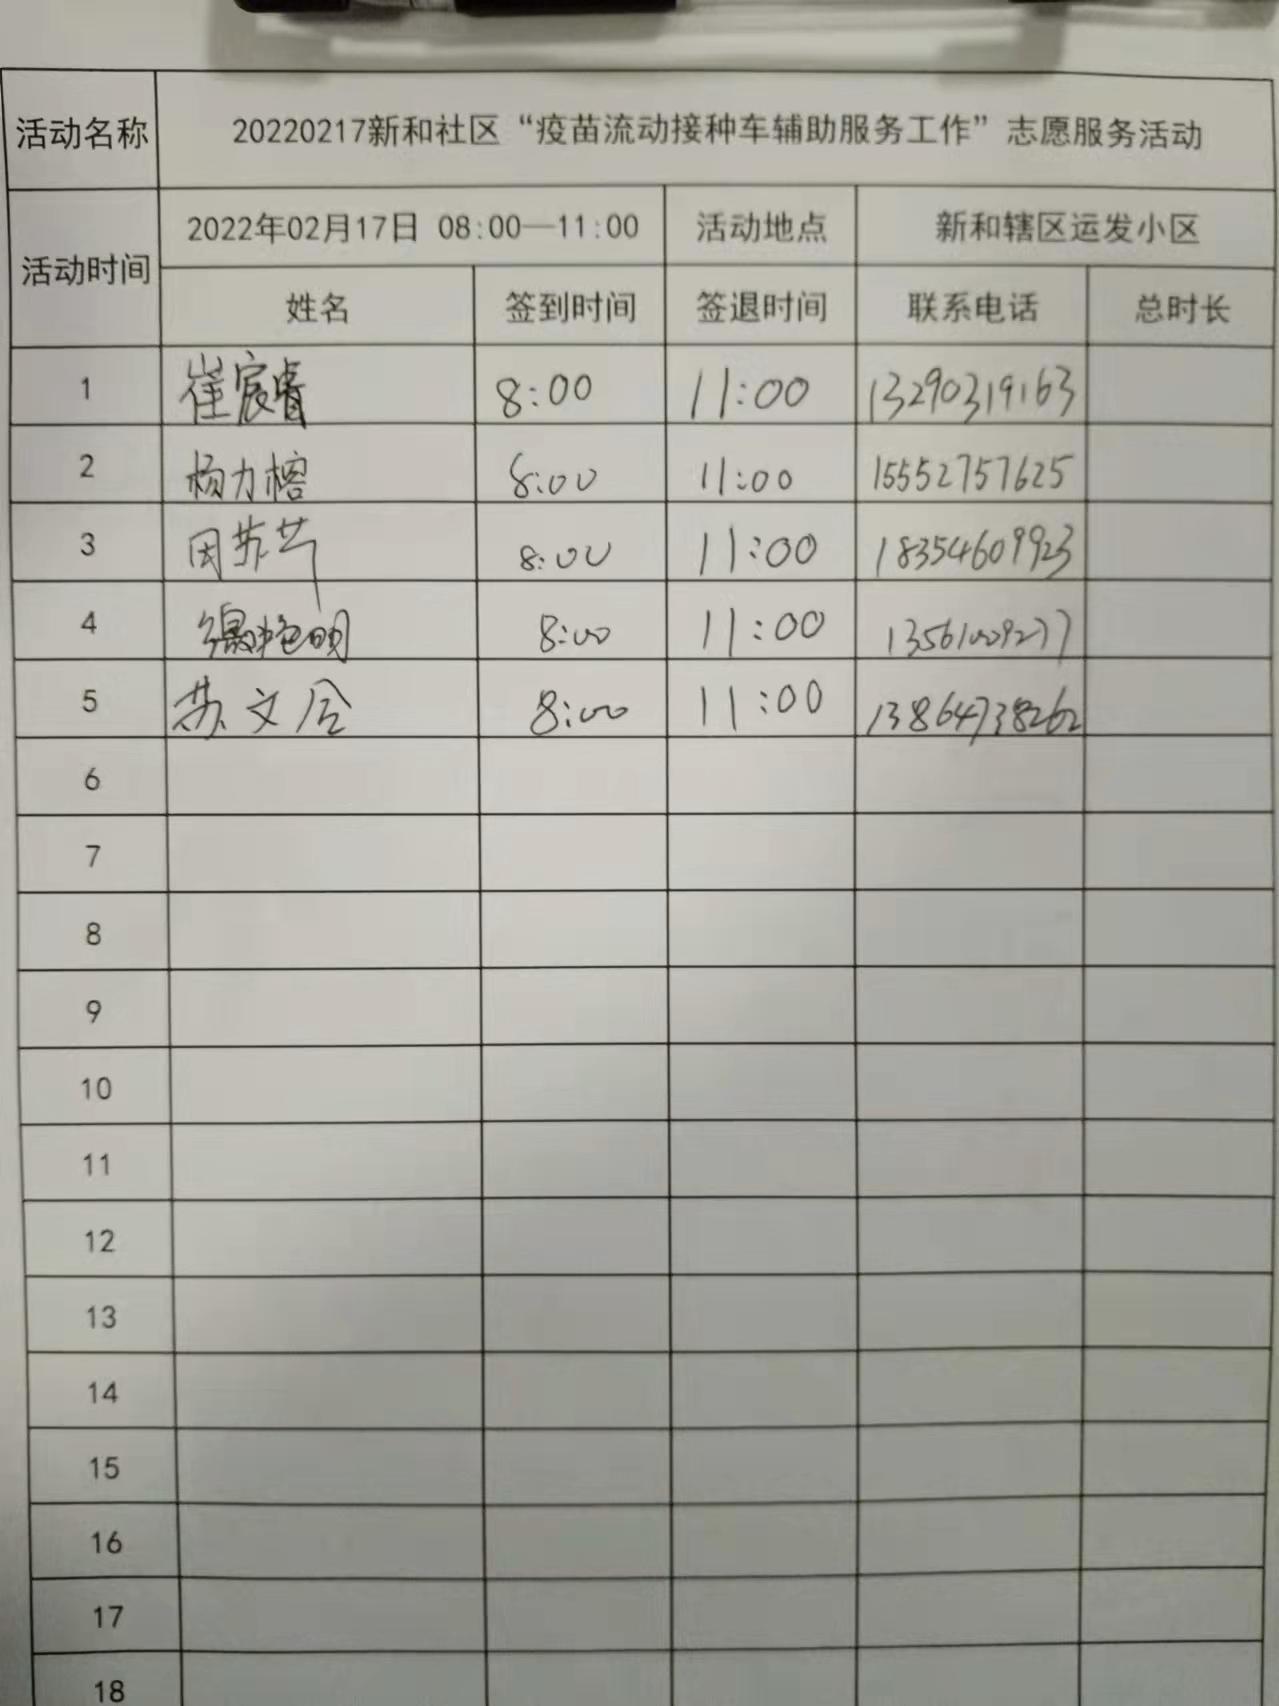 活动名称 20220217新和社区“疫苗流动接种车辅助服务工作”志愿服务活动
活动时间 2022年02月17日 08:00—11:00 活动地点 新和辖区运发小区
姓名 签到时间 签退时间 联系电话 总时长
1 崔宸睿 8:00 11:00 13290319163
2 杨力榕 8:00 11:00 15552757625
3 8:00 11:00 18354609923
4 8:00 11:00
5 苏文 8:00 11:00 13864738262
6
7
8
9
10
11
12
13
14
15
16
17
18